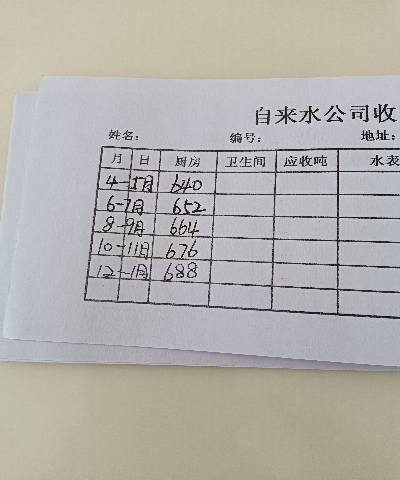 自来水公司收
姓名： 编号： 地址：
月 日 厨房 卫生间 应收吨 水表
4-5月 640
6-7月 652
8-9月 664
10-11月 676
12-1月 688